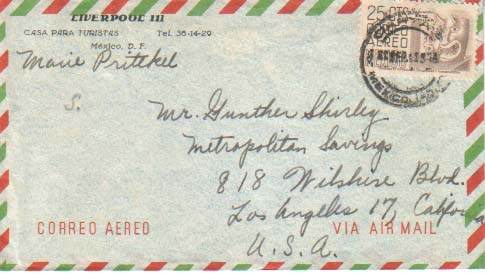 LIVERPOOL 111
CASA PARA TURISTAS Tel. 36-14-29
México, D. F.
Marie Prittkel
S.
25 CTS
CORREO
AEREO
MEXICO
Mr. Gunther Shirley
Metropolitan Savings
818 Wilshire Blvd.
Los Angeles 17, California
U.S.A.
CORREO AEREO
VIA AIR MAIL